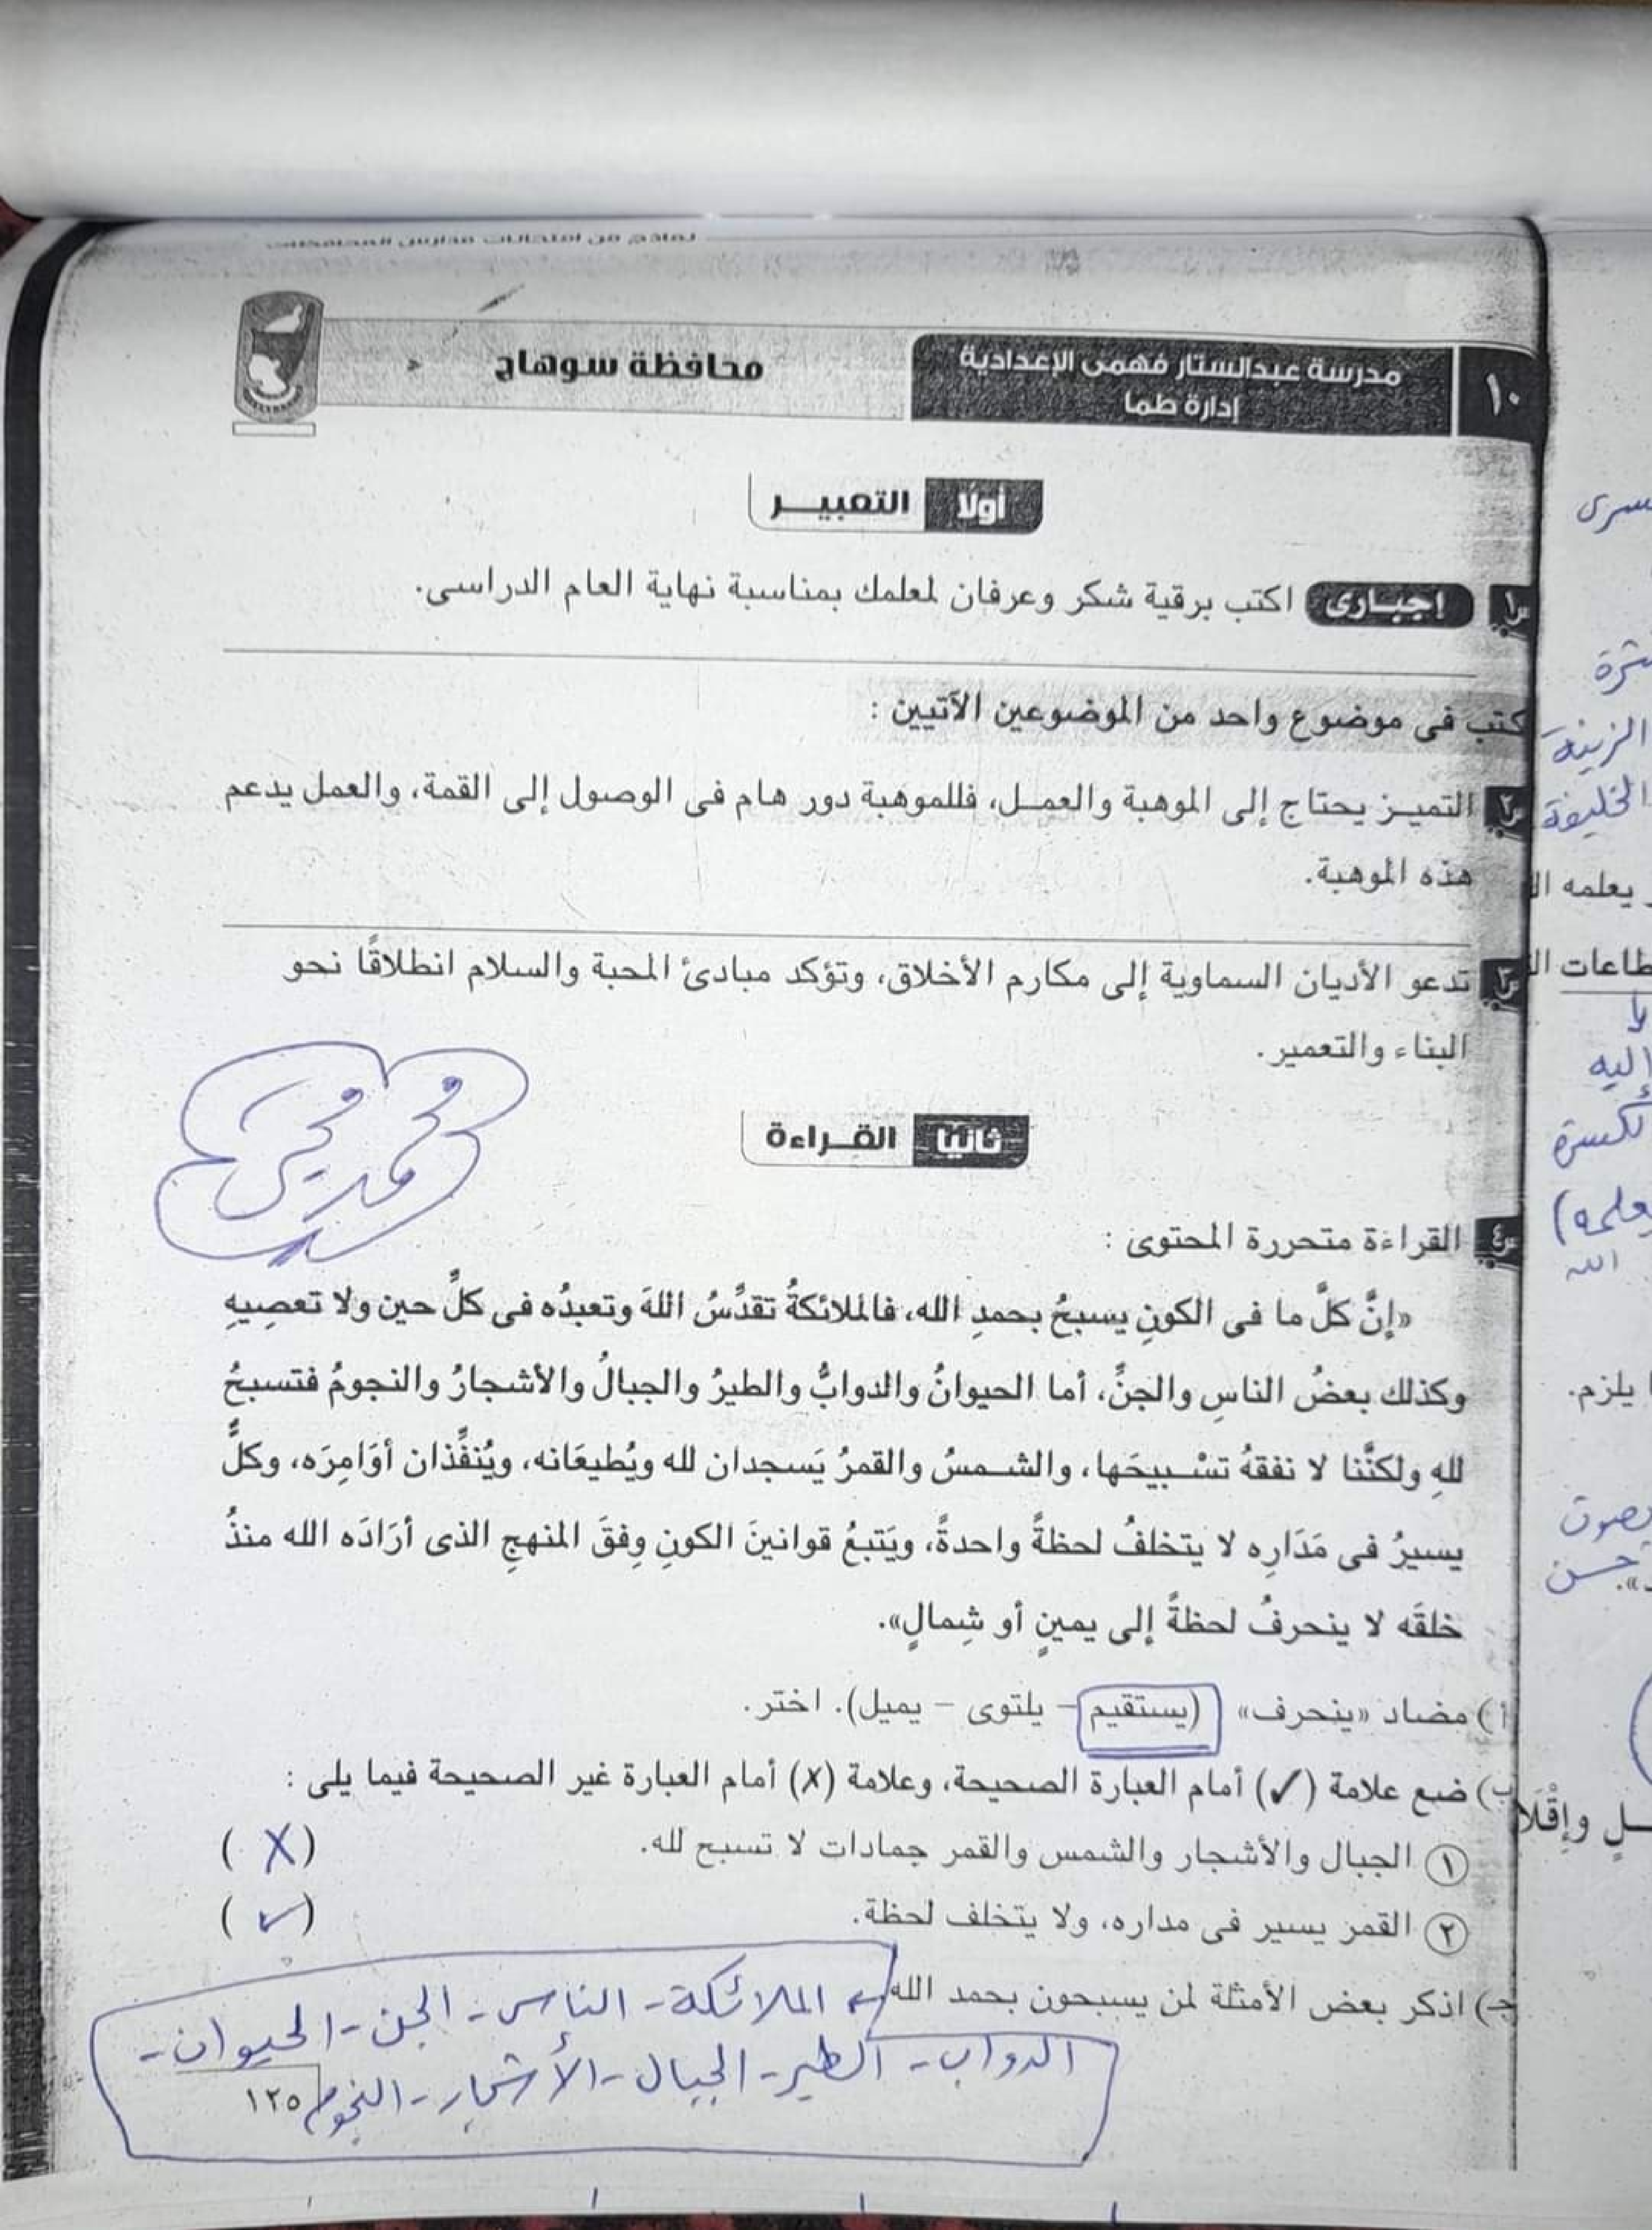 نماذج من امتحانات مدارس المحافظات
١٠
مدرسة عبدالستار فهمى الإعدادية
إدارة طما
محافظة سوهاج
أولًا التعبير
س١ إجبارى اكتب برقية شكر وعرفان لمعلمك بمناسبة نهاية العام الدراسى.
كتب فى موضوع واحد من الموضوعين الآتيين :
س٢ التميز يحتاج إلى الموهبة والعمل، فللموهبة دور هام فى الوصول إلى القمة، والعمل يدعم
هذه الموهبة.
س٣ تدعو الأديان السماوية إلى مكارم الأخلاق، وتؤكد مبادئ المحبة والسلام انطلاقًا نحو
البناء والتعمير.
ثانيًا القراءة
س٤ القراءة متحررة المحتوى :
«إنَّ كلَّ ما فى الكونِ يسبحُ بحمدِ الله، فالملائكةُ تقدِّسُ اللهَ وتعبدُه فى كلِّ حين ولا تعصِيهِ
وكذلك بعضُ الناسِ والجنِّ، أما الحيوانُ والدوابُّ والطيرُ والجبالُ والأشجارُ والنجومُ فتسبحُ
للهِ ولكنَّنا لا نفقهُ تسْبيحَها، والشمسُ والقمرُ يَسجدان لله ويُطيعَانه، ويُنفِّذان أوَامِرَه، وكلٌّ
يسيرُ فى مَدَارِه لا يتخلفُ لحظةً واحدةً، ويَتبعُ قوانينَ الكونِ وِفقَ المنهجِ الذى أرَادَه الله منذُ
خلقَه لا ينحرفُ لحظةً إلى يمينٍ أو شِمالٍ».
أ) مضاد «ينحرف» (يستقيم – يلتوى – يميل). اختر.
ب) ضع علامة (✓) أمام العبارة الصحيحة، وعلامة (X) أمام العبارة غير الصحيحة فيما يلى :
١ الجبال والأشجار والشمس والقمر جمادات لا تسبح لله. (X)
٢ القمر يسير فى مداره، ولا يتخلف لحظة. (✓)
جـ) اذكر بعض الأمثلة لمن يسبحون بحمد الله ← الملائكة - الناس - الجن - الحيوان -
الدواب - الطير - الجبال - الأشجار - النجوم
١٢٥
الزينة
الخليفة
يعلمه
إليه
الله
يلزم.
حسن